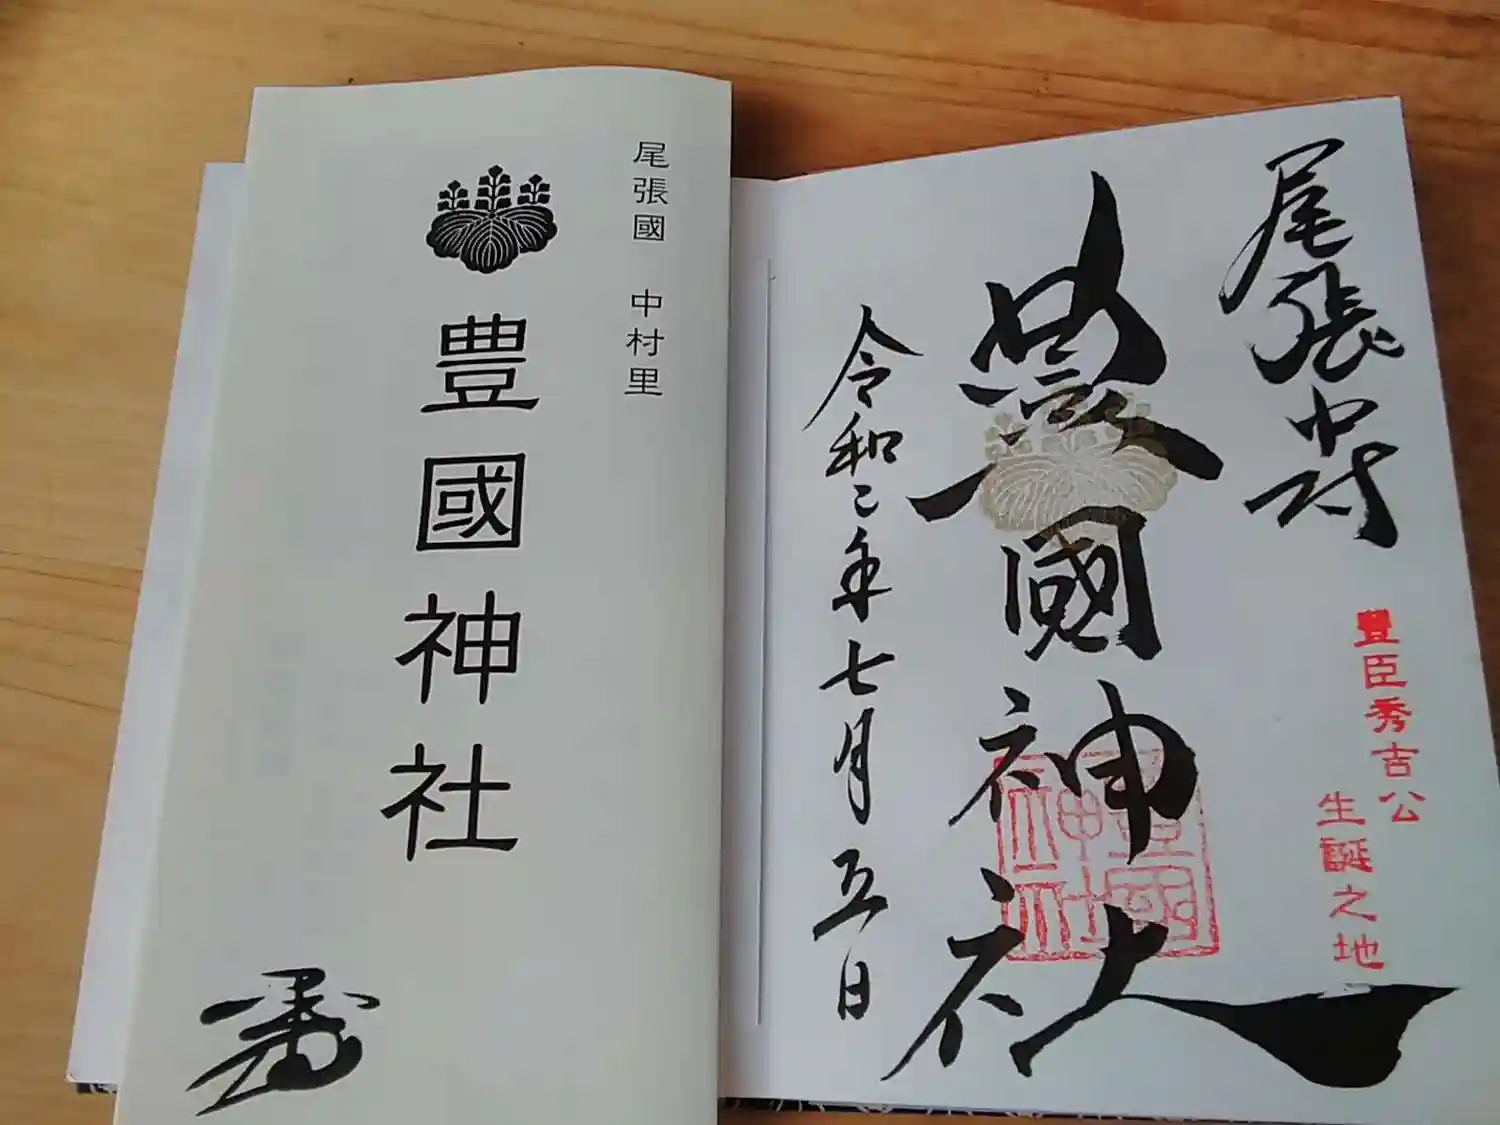 尾張國 中村里
豊國神社
尾張中村
豊國神社
令和二年七月五日
豊臣秀吉公
生誕之地
豊國
神社